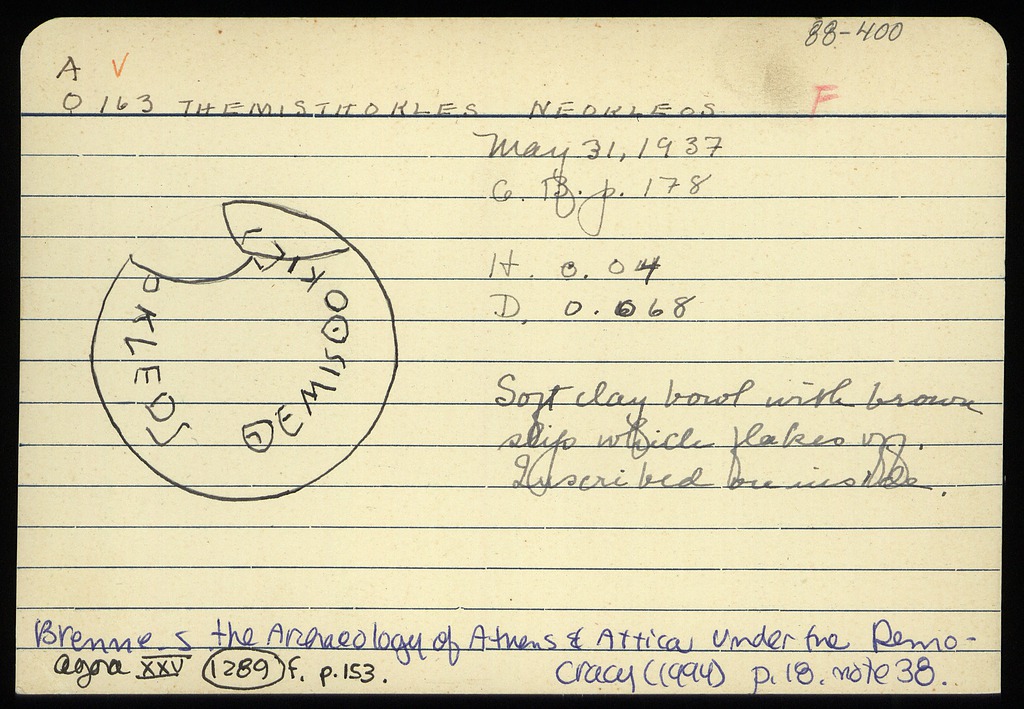 88-400
A V
O 163 THEMISTHOKLES NEOKLEOS F
May 31, 1937
G. B. p. 178
H. 0.04
D. 0.068
ΘEMISΘOKL
OKLEOS
Soft clay bowl with brown
slip which flakes off.
Inscribed on inside.
Brenne s the Archaeology of Athens & Attica Under the Demo-
cracy (1994) p.18. note 38.
Agora XXV 1289 f. p.153.